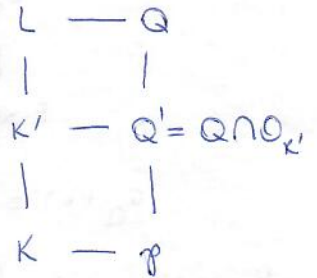 L — Q
K' — Q' = Q∩O_{K'}
K — p